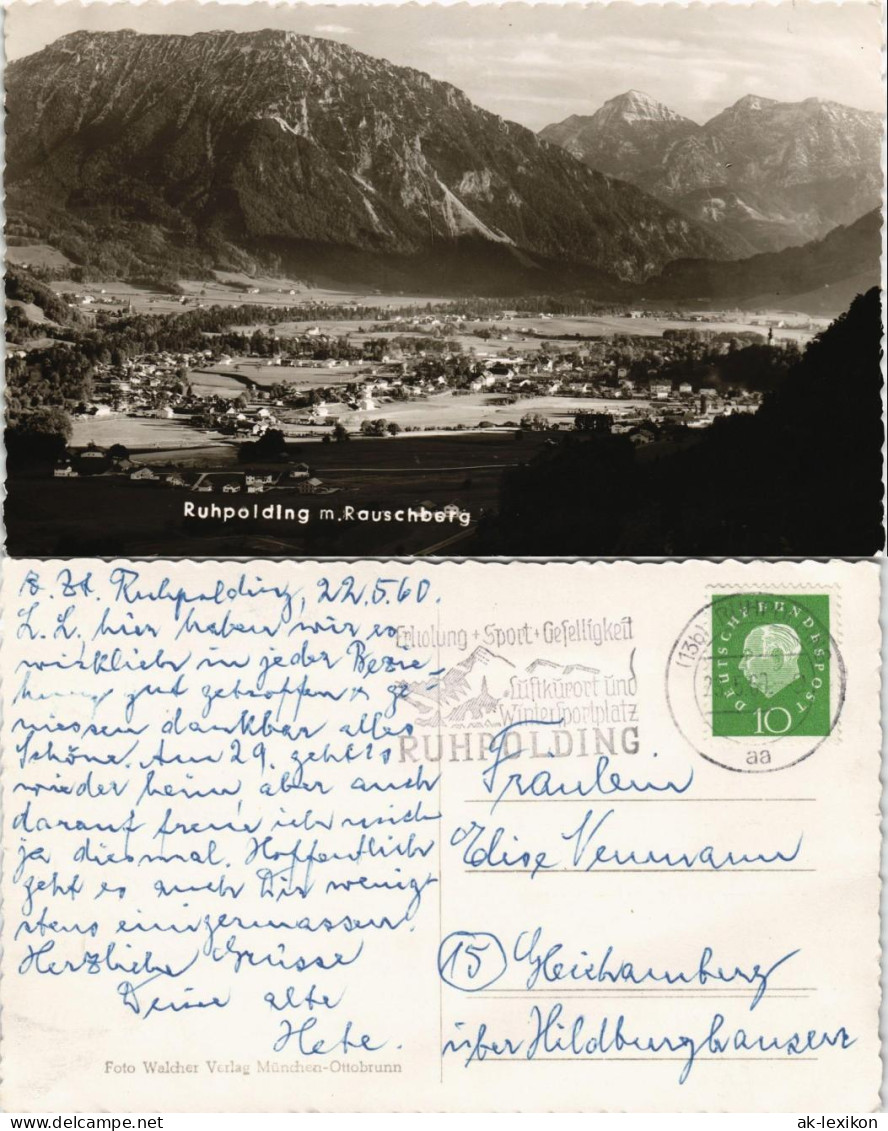 Ruhpolding m. Rauschberg
z. Zt. Ruhpolding, 22.5.60.
L. L. hier haben wir es
wirklich in jeder Bezie-
hung gut getroffen u. ge-
niessen dankbar alles
Schöne. Am 29. geht's
wieder heim, aber auch
darauf freue ich mich
ja diesmal. Hoffentlich
geht es auch Dir wenig-
stens einigermassen.
Herzliche Grüsse
Deine alte
Hete.
Foto Walcher Verlag München-Ottobrunn
Erholung + Sport + Geselligkeit
Luftkurort und
Wintersportplatz
RUHPOLDING
(13b)
aa
DEUTSCHE BUNDESPOST
10
Fräulein
Elise Neumann
(15) Gleichamberg
über Hildburghausen
ak-lexikon